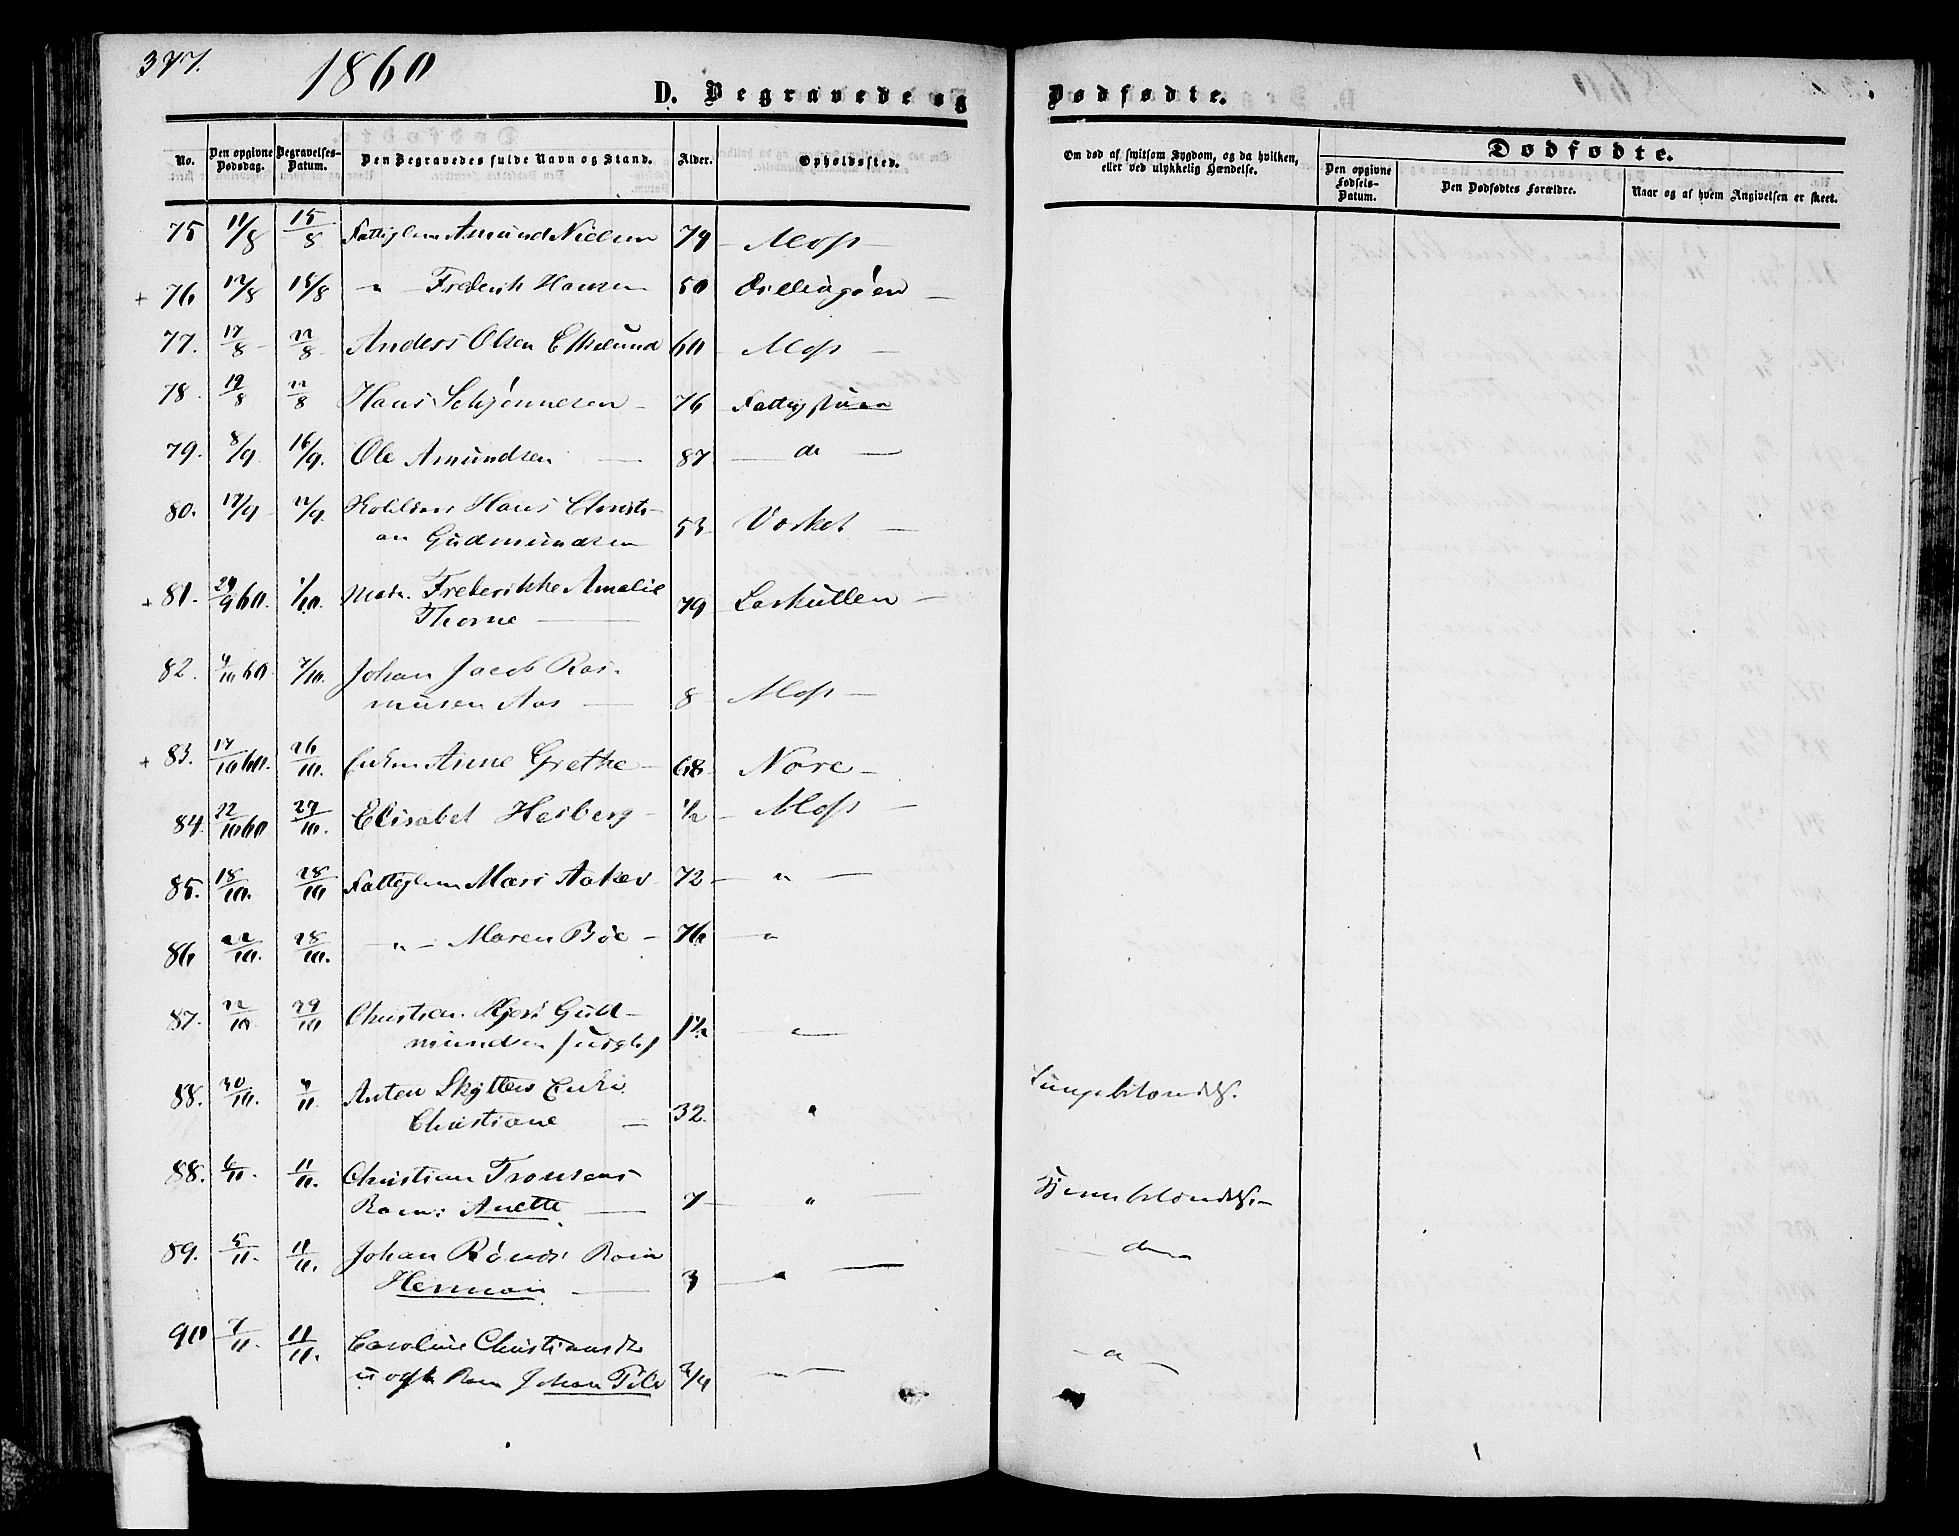 377.
1860
D. Begravede og Dødfødte.
No. Den opgivne Dødsdag. Begravelses-Datum. Den Begravedes fulde Navn og Stand. Alder. Opholdssted.
Om død af smitsom Sygdom, og da hvilken, eller ved ulykkelig Hændelse.
Dødfødte.
Den opgivne Fødsels-Datum. Den Dødfødtes Forældre. Naar og af hvem Angivelsen er skeet.
75 11/8 15/8 Fattiglem Amund Nielsen 79 - Moss -
+ 76 12/8 18/8 " Frederik Hansen 50 -
77. 17/8 22/8 Anders Olsen 60 Moss -
78. 19/8 22/8 Hans Schjønnesen - 76 Fattigstuen
79. 8/9 16/9. Ole Amundsen - 87 - do -
80. 17/9 Hans Christi-
an Gudmundsen 53 Vosket -
+ 81. 29/9 60. 1/10. Mad. Frederikke Amalie
Thorne - 79 Laskullen -
82. 4/10 60 7/10. Johan Jacob Ras-
musen Aas - 8 Moss -
+ 83. 17/10 60. 26/10. Enken Anne Grethe - 68 - Nore -
84. 22/10 60 27/10. Elisabet Hesberg - 1/2 - Moss -
85. 18/10. 28/10 Fattiglem Mari 72 - " -
86 22/10. 28/10. - " - Maren Bøe - 76 - "
87. 22/10 29/10 Christian Gud-
mundsen 1 1/2 "
88. 30/10. 4/11. Anten Skytters Enke
Christiane - 32. " Lungebetændelse.
88. 6/11. 11/11. Christian Tronsens
Barn: Anette - 7 - " - Hjernebetændelse. -
89. 5/11. 11/11. Johan Rønes Barn
Herman - 3 - " - - do -
90 7/11. 11/11. Caroline Christiansdr
uægte Barn Johan 3/4 - " -